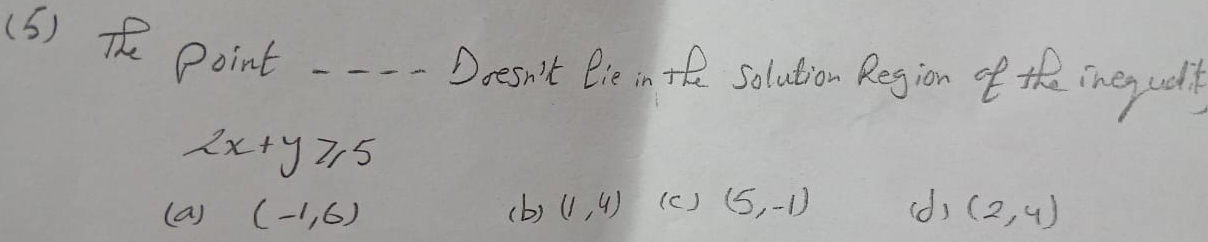 (5) The Point ---- Doesn't lie in the Solution Region of the inequality
2x+y ≥ 5
(a) (-1,6) (b) (1,4) (c) (5,-1) (d) (2,4)